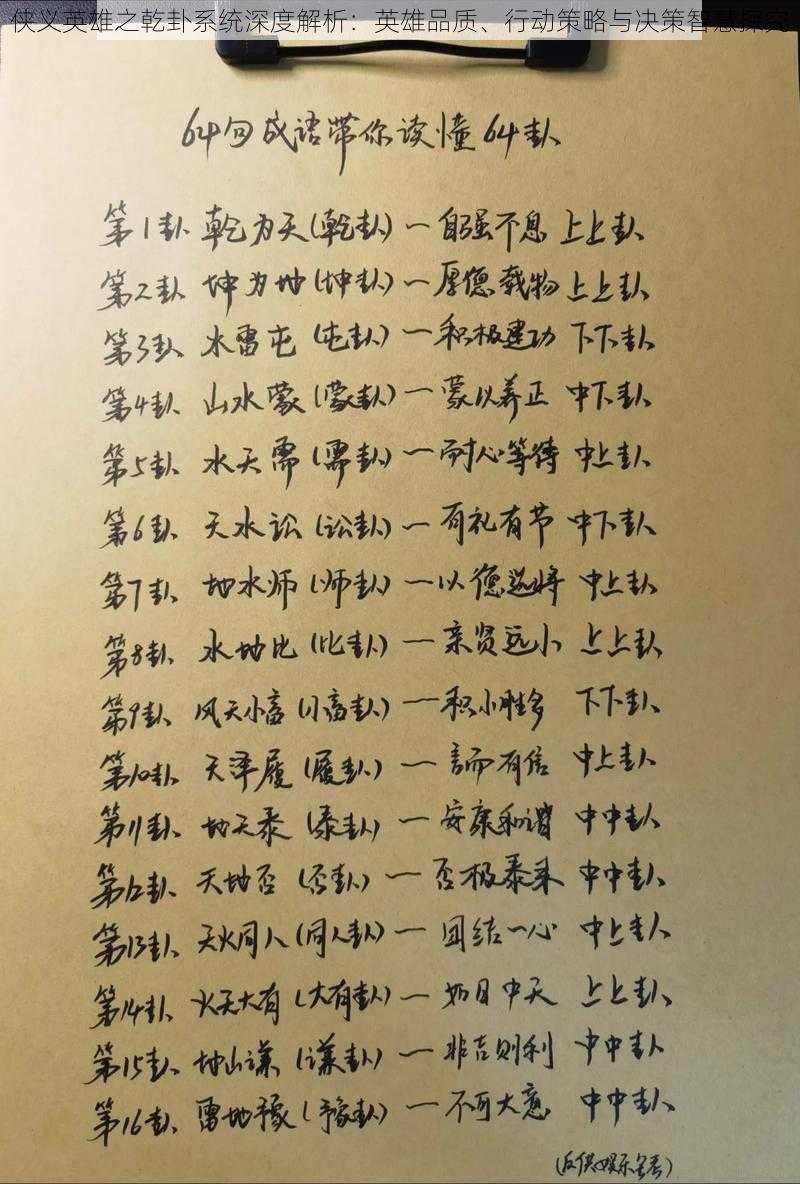 侠义英雄之乾卦系统深度解析：英雄品质、行动策略与决策智慧探究
64句成语带你读懂64卦
第1卦 乾为天(乾卦)一自强不息 上上卦
第2卦 坤为地(坤卦)一厚德载物 上上卦
第3卦 水雷屯(屯卦)一积极建功 下下卦
第4卦 山水蒙(蒙卦)一蒙以养正 中下卦
第5卦 水天需(需卦)一耐心等待 中上卦
第6卦 天水讼(讼卦)一有礼有节 中下卦
第7卦 地水师(师卦)一以德选将 中上卦
第8卦 水地比(比卦)一亲贤远小 上上卦
第9卦 风天小畜(小畜卦)一积小胜多 下下卦
第10卦 天泽履(履卦)一言而有信 中上卦
第11卦 地天泰(泰卦)一安康和谐 中中卦
第12卦 天地否(否卦)一否极泰来 中中卦
第13卦 天火同人(同人卦)一团结一心 中上卦
第14卦 火天大有(大有卦)一如日中天 上上卦
第15卦 地山谦(谦卦)一非吉则利 中中卦
第16卦 雷地豫(豫卦)一不可大意 中中卦
(仅供娱乐参考)